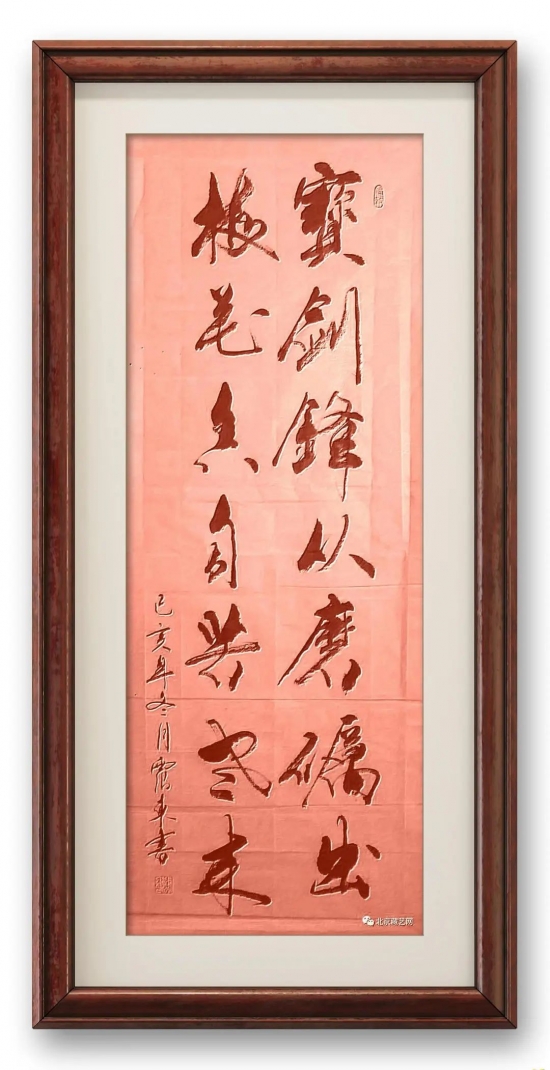 寶劍鋒从磨礪出
梅花香自苦寒来
己亥年冬月震東書
北京藏艺网